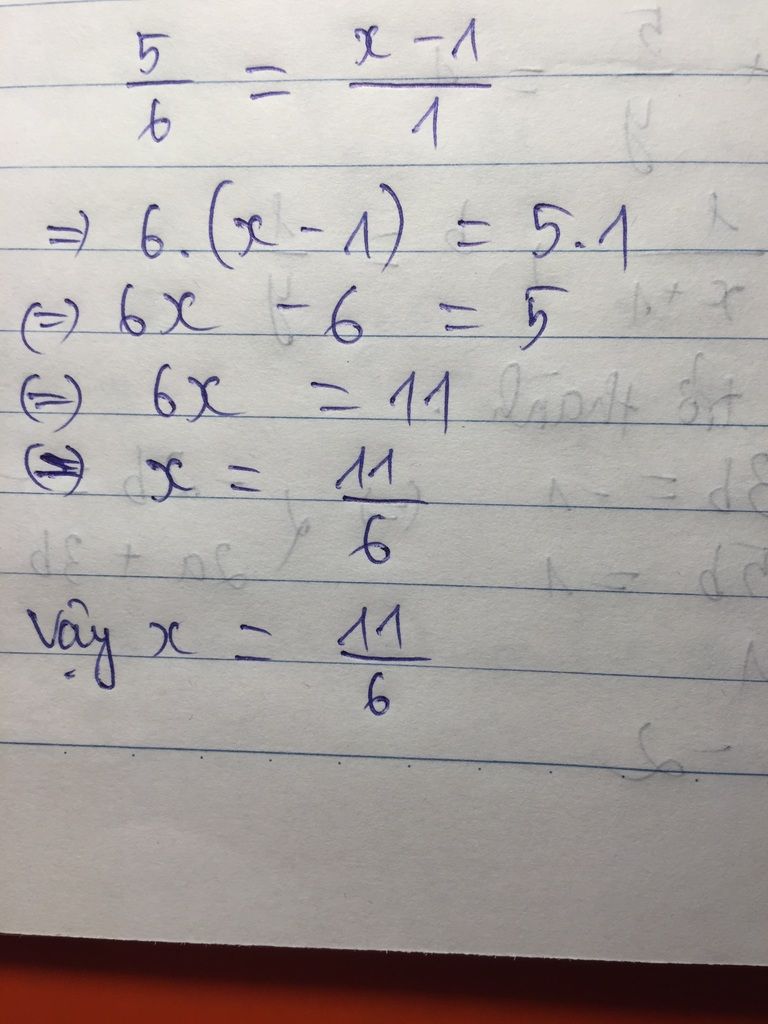 5/6 = x - 1/1
=> 6.(x - 1) = 5.1
(=) 6x - 6 = 5
(=) 6x = 11
(=) x = 11/6
Vậy x = 11/6